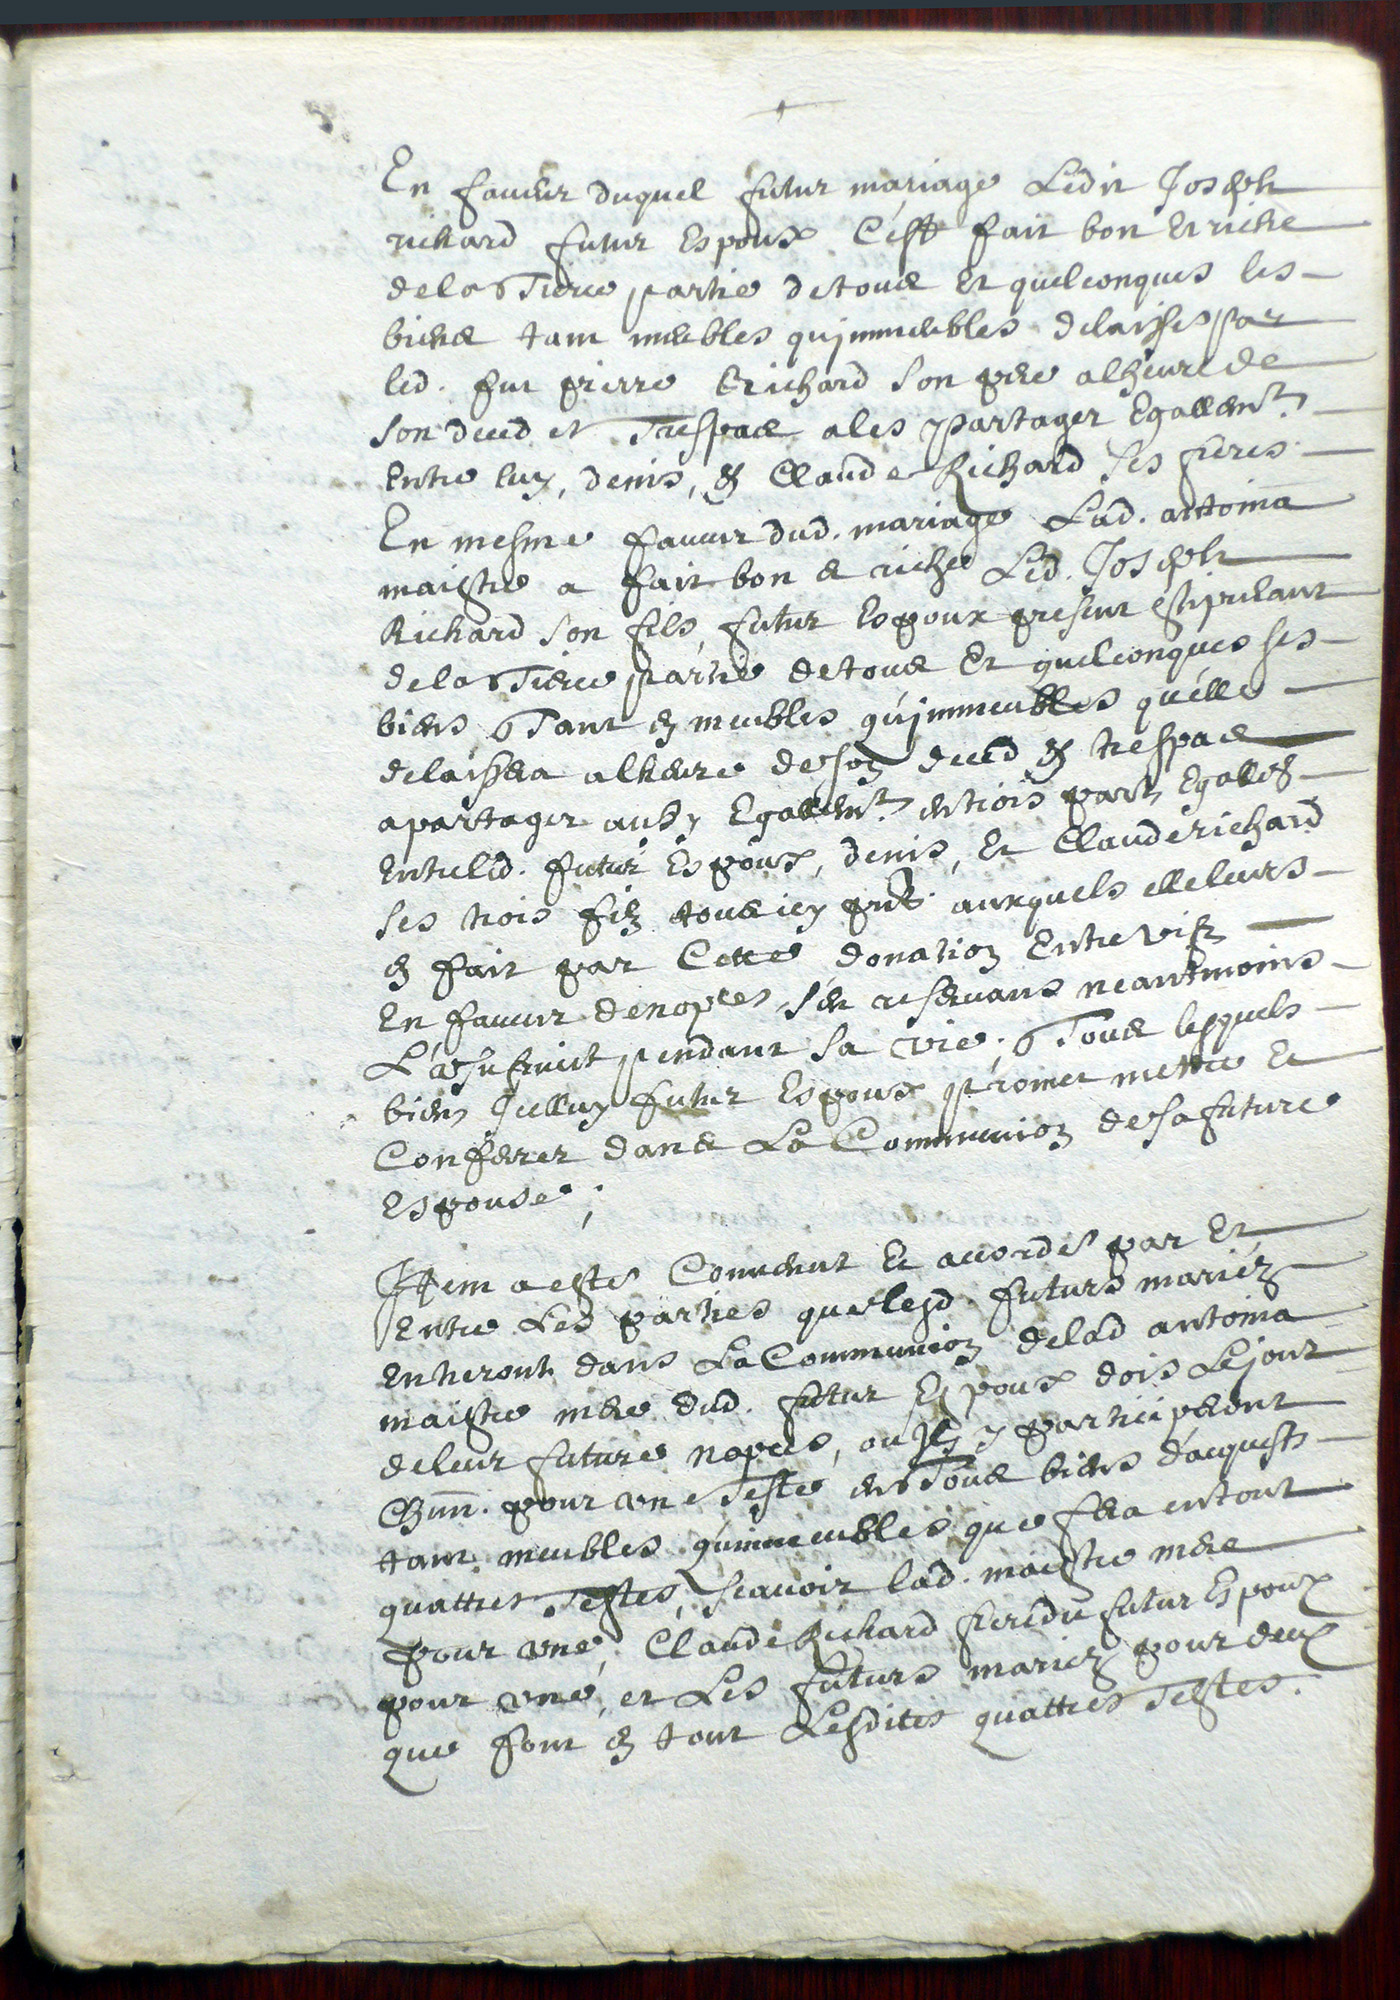 En faveur duquel futur mariage Ledit Joseph
richard futur Espoux C'est fait bon Et riche
de la Tierce partie de tous Et quelconques les
biens tant meubles qu'immeubles delaisses par
led. fut pierre Richard son pere alheure de
son deced et Trespas a les partager Egallemt
Entre luy, denis, & Claude Richard ses freres
En mesme faveur dud. mariage Lad. antoina
maistre a fait bon & riche Led. Joseph
Richard son fils, futur Espoux present estipulant
de la Tierce partie de tous Et quelconques ses
biens Tant en meubles qu'immeubles qu'elle
delaissera alheure de son deced & trespas
apartager ausy Egallemt en trois parts Egalles
Entre led. futur Espoux, denis, Et Claude richard
ses trois filz tous icy pnt auxquels elle leurs
en fait par Cette donation Entre vifz
En faveur de nopces, s'en reservans neantmoins
L'usufruict pendant sa vie; Tous lesquels
biens Jcelluy futur Espoux promet mettre Et
Conferer dans La Communion de sa future
Espouse;
Jtem a estes Convenut Et accordes par Et
Entre Les parties que lesd. futurs mariéz
Entreront dans La Communion de lad antoina
maistre mere dud. futur Espoux dois Le jour
de leur future nopces, ou Jls y participeront
Chun. pour une Teste en Tous biens d'acquests
tant meubles qu'immeubles que sera en tout
quattres Testes, scavoir lad. maistre mere
pour une, Claude Richard frere du futur Espoux
pour une, et Les futurs mariez pour deux
que font en tout Lesdites quattres Testes.